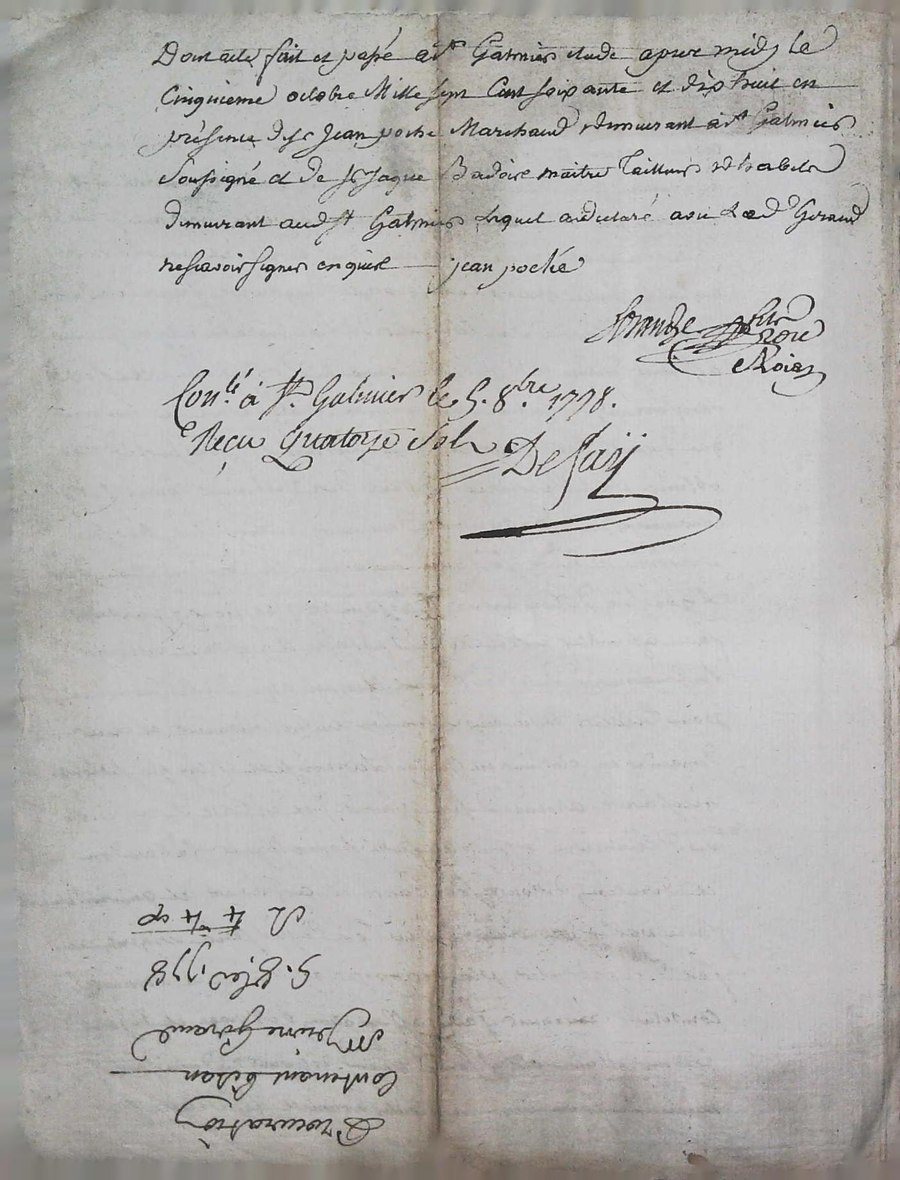 Dont acte fait et passé a st Galmier etude apres midy le
cinquieme octobre Mille sept Cent soixante et dix huit en
présence de sr Jean poche Marchand demeurant a st Galmier
soussigné et de sr Jaque Badoire maitre Tailleur d'habits
demeurant aud st Galmier lequel a declaré avec led Geraud
ne scavoir signer enquis jean poche
noire
Conlé a St. Galmier le 5. 8bre 1778.
Reçu quatorze sols DeSaij
Procuration
Contenant
Geraud
5. 8bre 1778